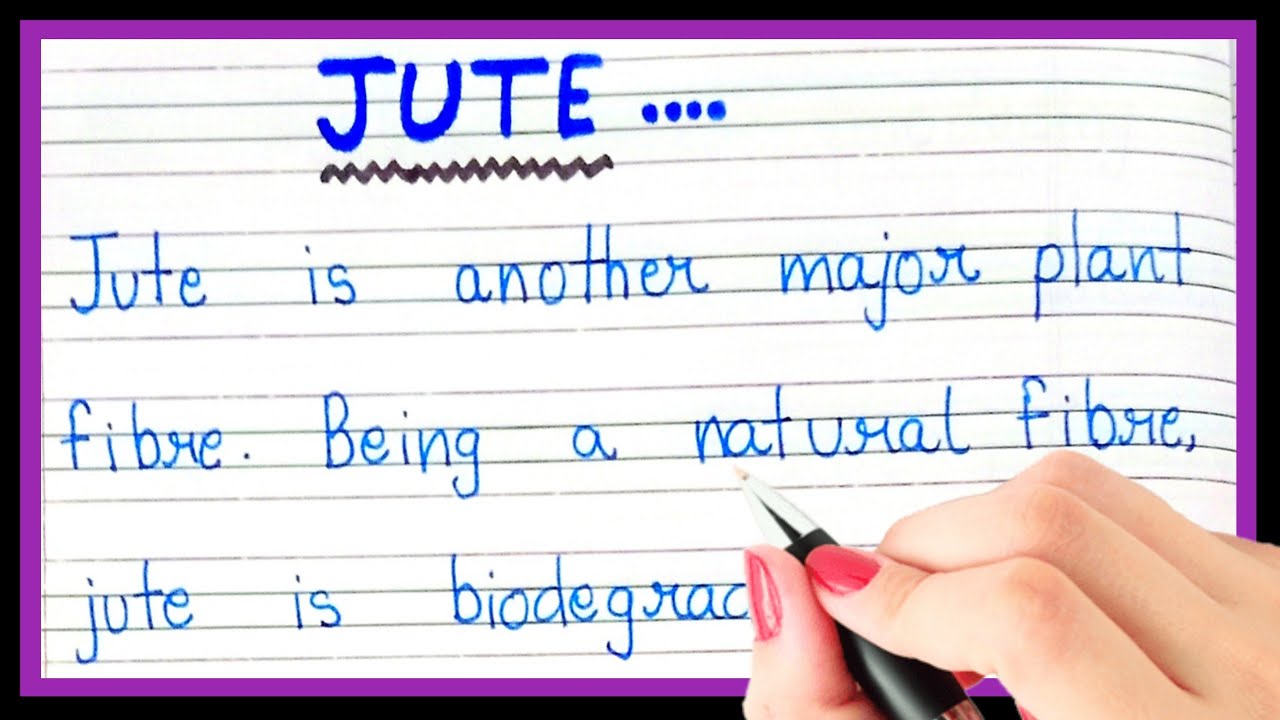 JUTE ....
Jute is another major plant
fibre. Being a natural fibre,
jute is